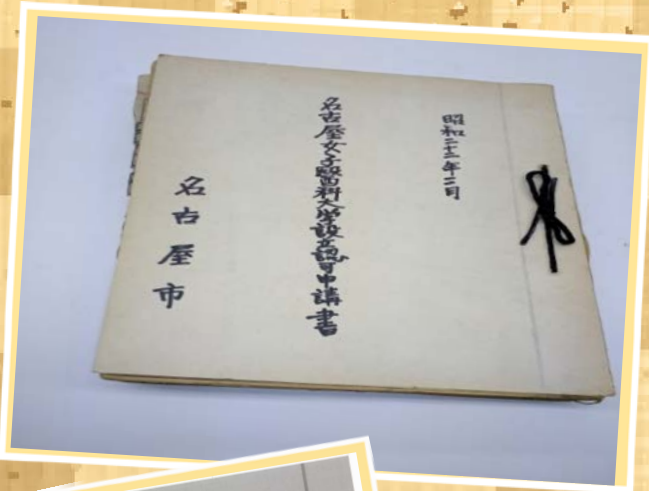 昭和二十二年二月
名古屋女子醫科大学設立認可申請書
名古屋市